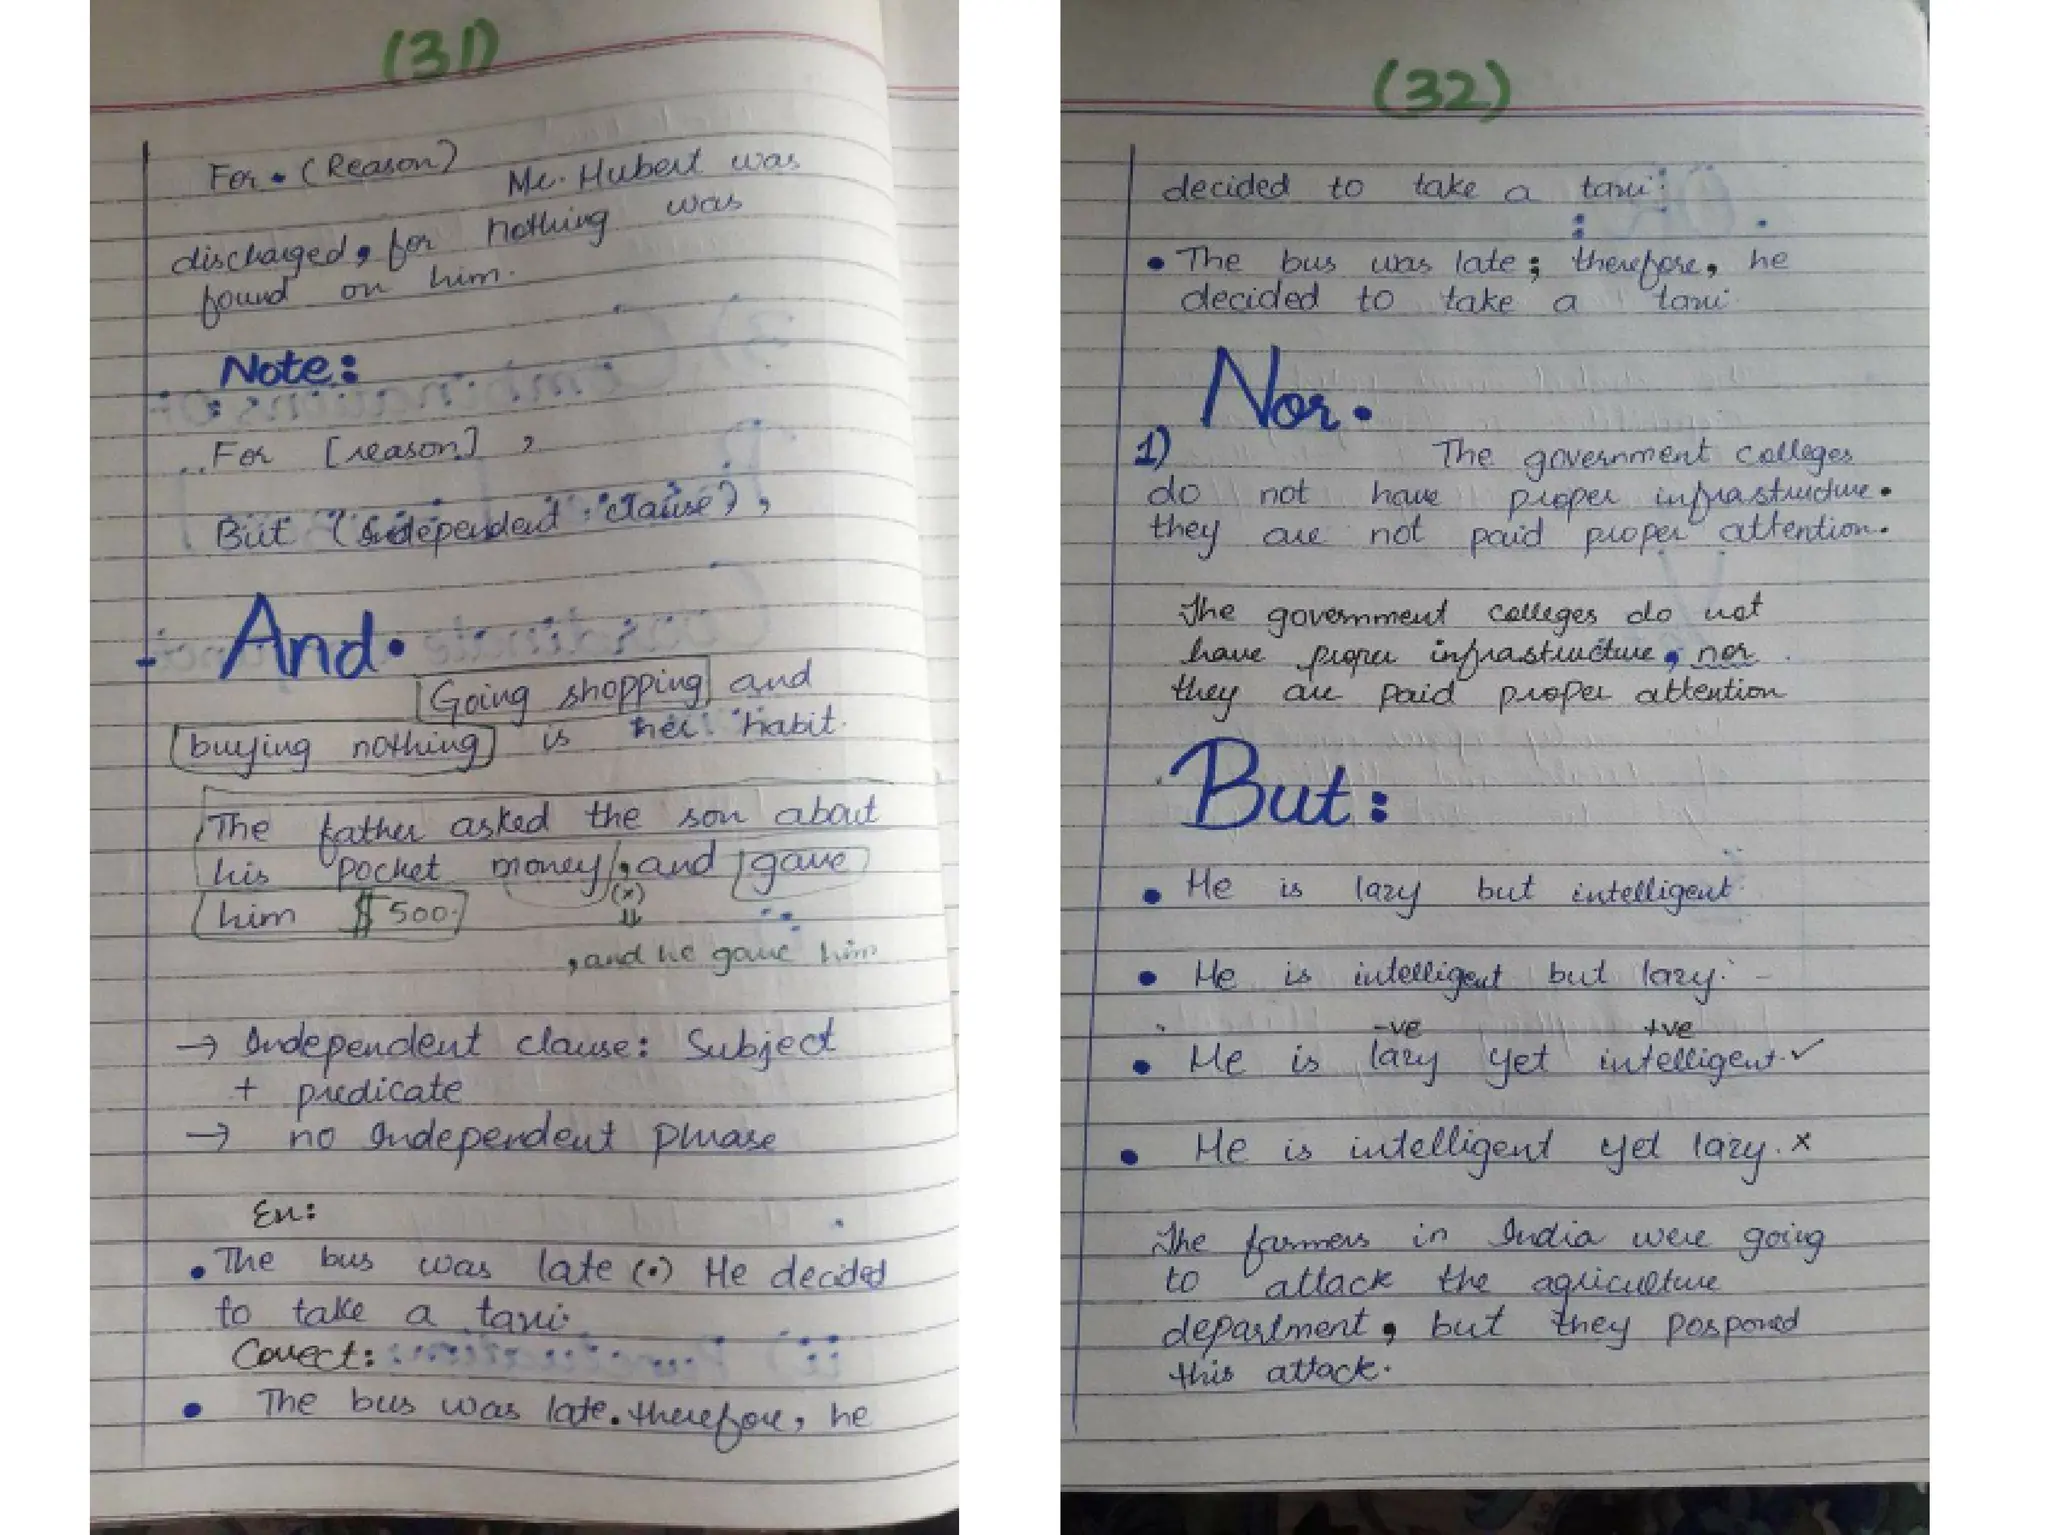 (31)
For. (Reason)
Mr. Hubert was
discharged, for nothing was
found on him.
Note:
For [reason] ,
But (Independent clause) ,
And.
Going shopping and
buying nothing is her habit.
The father asked the son about
his pocket money , and gave
(x)
him $ 500.
, and he gave him
→ Independent clause: Subject
+ predicate
→ no Independent phrase
Ex:
• The bus was late (.) He decided
to take a taxi.
Correct:
• The bus was late. therefore, he
(32)
decided to take a taxi.
• The bus was late ; therefore, he
decided to take a taxi.
Nor.
1) The government colleges
do not have proper infrastructure.
they are not paid proper attention.
The government colleges do not
have proper infrastructure, nor
they are paid proper attention
But:
• He is lazy but intelligent.
• He is intelligent but lazy.
-ve +ve
• He is lazy yet intelligent. ✓
• He is intelligent yet lazy. x
The farmers in India were going
to attack the agriculture
department, but they posponed
this attack.